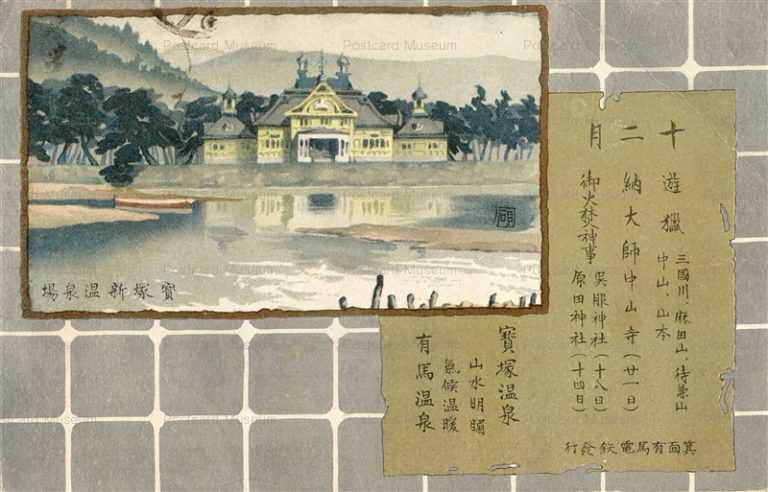 Postcard Museum Postcard Museum Postcard Museum
十二月
遊獵 三國川、麻田山、待兼山
中山、山本
納大師中山寺(廿一日)
御火焚神事 呉服神社(十八日)
原田神社(十四日)
寶塚温泉
山水明媚
氣候温暖
有馬温泉
箕面有馬電鉄發行
寶塚新温泉場